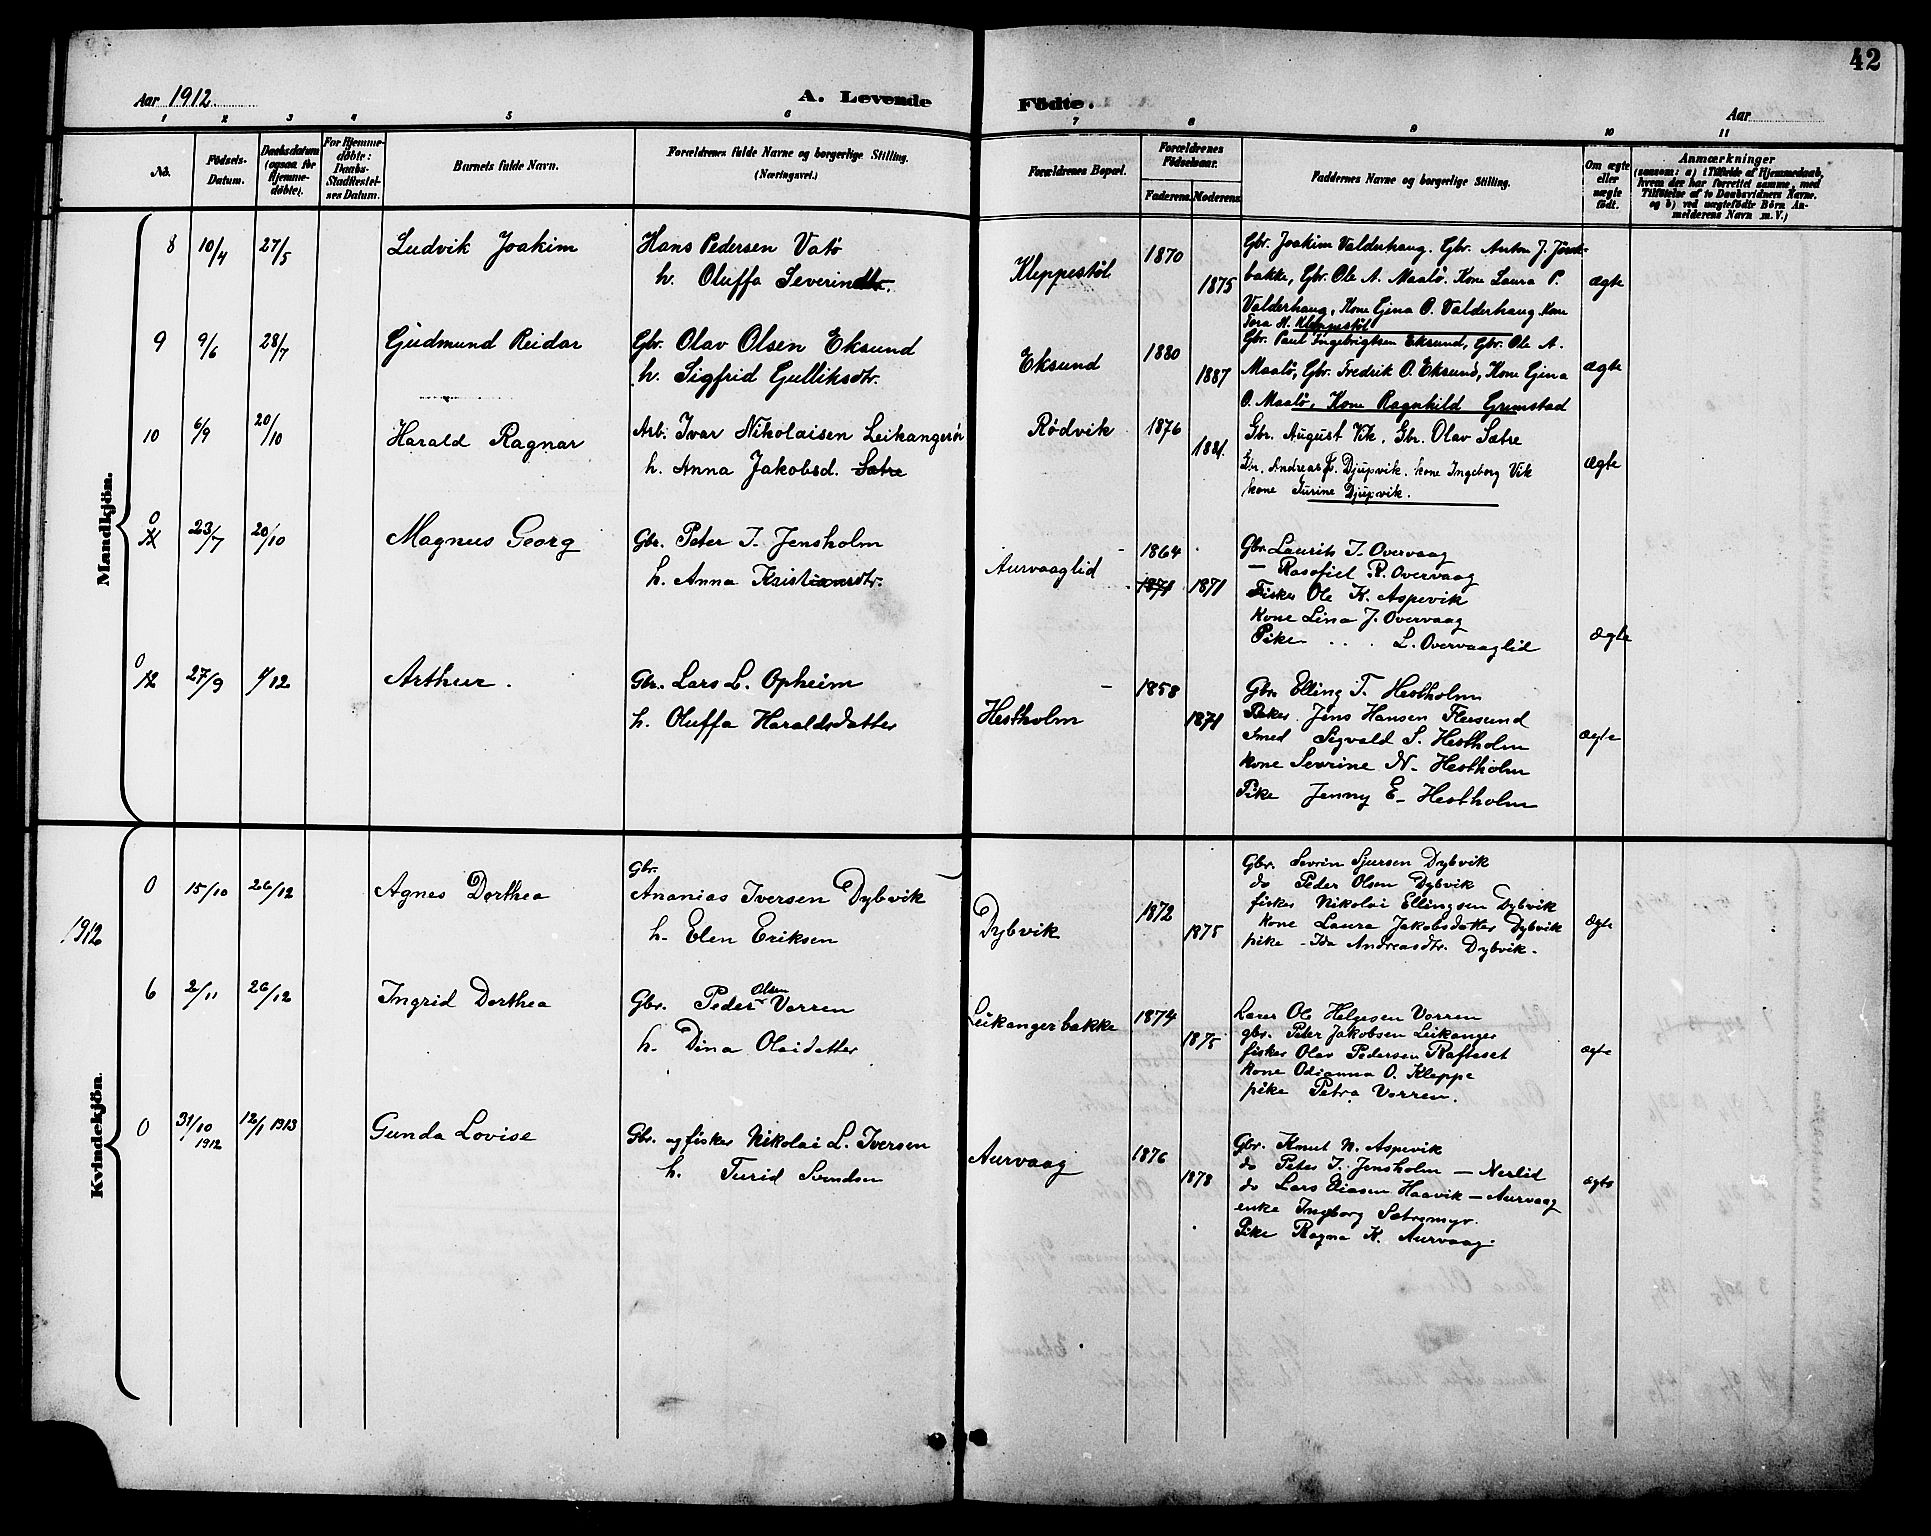 42
Aar 1912.
A. Levende
Födte.
Aar
1
2
3
4
5
6
7
8
9
10
11
No.
Födsels-
Datum.
Daabsdatum
(ogsaa for
Hjemme-
döbte).
For Hjemme-
döbte:
Daabs-
Stadfæstel-
ses Datum.
Barnets fulde Navn.
Forældrenes fulde Navne og borgerlige Stilling.
(Næringsvei.)
Forældrenes Bopæl.
Forældrenes
Födselsaar.
Faderens.
Moderens.
Faddernes Navne og borgerlige Stilling.
Om ægte
eller
uægte
født.
Anmærkninger
(saasom: a) i Tilfælde af Hjemmedaab,
hvem der har forrettet samme, med
Tilföielse af to Daabsvidners Navne.
og b) ved uægtefödte Börn An-
melderens Navn m.V.)
Mandkjön.
8
10/4
27/5
Ludvik Joakim
Hans Pedersen Vatö
h. Oluffa Severindtr.
Kleppestöl
1870
1875
Gbr. Joakim Valderhaug. Gbr. Anton J.
bakke, Gbr. Ole A. Maalö. Kone Laura P.
Valderhaug, Kone Gjena O. Valderhaug. Kone
Tora H. Kleppestöl
ægte
9
9/6
28/7
Gjudmund Reidar
Gbr. Olav Olsen Eksund
h. Sigfrid Gulliksdtr.
Eksund
1880
1887
Gbr. Paul Ingebrigtsen Eksund, Gbr. Ole A.
Maalö, Gbr. Fredrik O. Eksund, Kone Gjena
O. Maalö, Kone Ragnhild Grimstad
ægte
10
6/9
20/10
Harald Ragnar
Arb. Ivar Nikolaisen Leikangerör
h. Anna Jakobsd. Sætre
Rødvik
1876
1881.
Gbr. August Vik, Gbr. Olav Sætre
Gbr. Andreas P. Djupvik. kone Ingeborg Vik
kone Turine Djupvik.
ægte
0
11
23/7
20/10
Magnus Georg
Gbr. Peter I. Jensholm
h. Anna Kristiansdtr.
Aurvaaglid
1864
1871 1871
Gbr Laurits I. Overvaag
— Rasofiel R. Overvaag
Fisker Ole K. Aspevik
Kone Lina J. Overvaag
Pike . . . L. Overvaaglid
Ægte
0
12
27/9
1/12
Arthur.
Gbr. Lars L. Opheim
h. Oluffa Haraldsdatter
Hestholm
1858
1871
Gbr Elling T. Hestholm
Jens Hansen Flersund
Smed Sigvald S. Hestholm
Kone Sevrine N. Hestholm
Pike Jenny E. Hestholm
ægte
1912
Kvindekjön.
0
15/10
26/12
Agnes Dorthea
Gbr.
Ananias Iversen Dybvik
h. Elen Eriksen
Dybvik
1872
1875
Gbr. Sevrin Sjursen Dybvik
do Peder Olsen Dybvik
fisker Nikolai Ellingsen Dybvik
kone Laura Jakobsdatter Dybvik
pike - Ida Andreasdtr. Dybvik.
ægte
6
2/11
26/12
Ingrid Dorthea
Gbr. Peder Olsen Vorren
h. Dina Olaidatter
Leikangerbakke
1874
1875
Lærer Ole Helgesen Vorren
gbr. Peter Jakobsen Leikanger
fisker Olav Pedersen Rafteset
kone Odianna O. Kleppe
pike Petra Vorren.
ægte
0
31/10
1912
12/1 1913
Gunda Lovise
Gbr. og fisker Nikolai L. Iversen
h. Turid Svendsen
Aurvaag
1876
1878
Gbr. Knut N. Aspevik
do Peter I. Jensholm — Nerlid
do Lars Eiasen Haavik — Aurvaag
enke Ingeborg Sætremyr.
Pike Ragna K. Aurvaag.
ægte